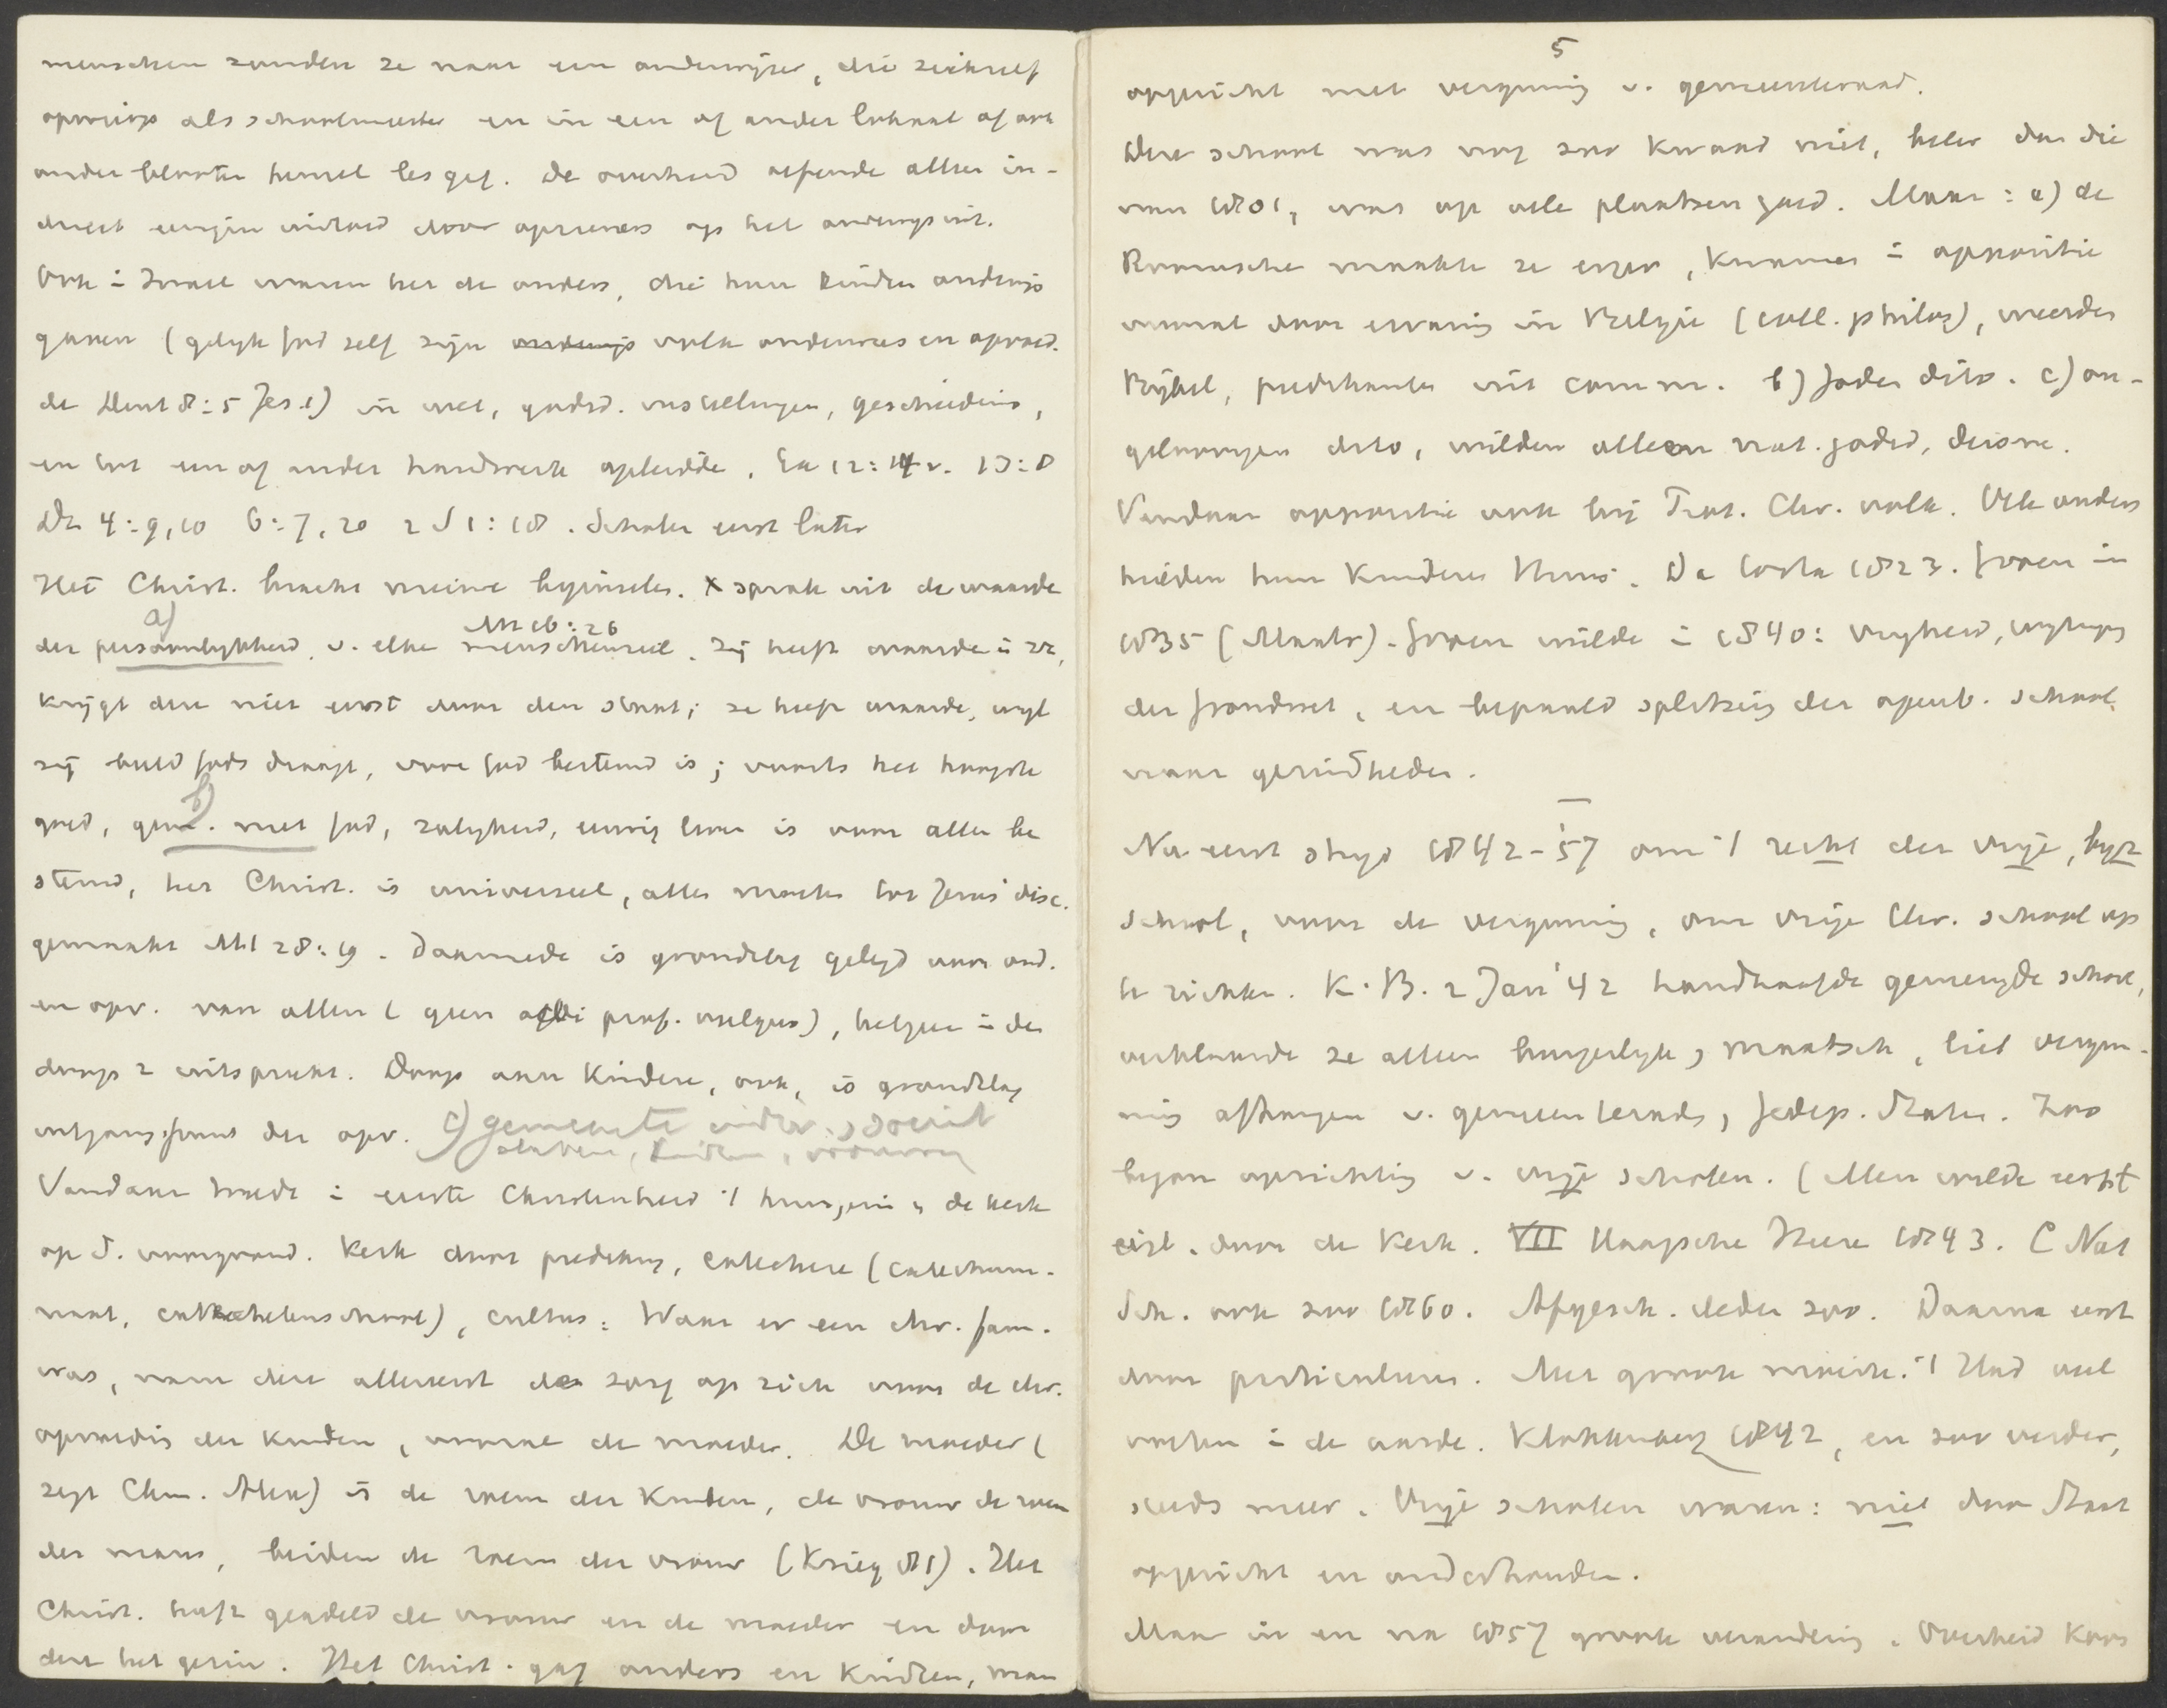 menschen zonden ze naar een onderwijzer, die zichzelf
opwierp als schoolmeester en in een of ander lokaal of ook
onder blooten hemel les gaf. De overheid oefende alleen in-
direct eenigen invloed door oprichten op het onderwijs uit.
Ook in Israel waren het de ouders, die hun kinderen onderwijs
gaven (gelijk God zelf zijn volk onderwees en opvoed-
de Deut 8:5 Jes 1) in wet, godsd. instellingen, geschiedenis,
en tot een of ander handwerk opleidde. Ex 12:14v. 13:8
Dt 4:9,10 6:7,20 2 S 1:18. Scholen eerst later
Het Christ. bracht nieuwe beginselen. x sprak uit de waarde
a)
Mt 16:26
der persoonlijkheid, v. elke menschenziel. Zij heeft waarde in zz,
krijgt deze niet eerst door den staat; ze heeft waarde, wijl
zij beeld Gods draagt, voor God bestemd is; voorts het hoogste
b)
goed, gem. met God, zaligheid, eeuwig leven is voor allen be
stemd, het Christ. is universeel, alles moeten tot Jezus' disc.
gemaakt Mt 28:19. Daarmede is grondslag gelegd voor ond.
en opv. van allen (geen odi prof. vulgus), hetgeen in den
doop z. uitspreekt. Doop aan kinderen, ook, is grondslag
uitgangspunt der opv. c) gemeente
slaven, kinderen, vrouwen
Vandaar trade in eerste Christenheid 't huisgezin en de kerk
op d. voorgrond. Kerk door prediking, catechese (catechume-
naat, catechetenschool), cultus. Waar er een chr. fam.
was, nam deze allereerst de zorg op zich voor de chr.
opvoeding der kinderen, vooral de moeder. De moeder (
zegt Clem. Alex) is de roem der kinderen, de vrouw de roem
des mans, beiden de roem der vrouw (Krieg 81). Het
Christ. heeft geadeld de vrouw en de moeder en daar
door het gezin. Het Christ. gaf ouders en kinderen, man
5
opgericht met vergunning v. gemeenteraad.
Deze school was nog zoo kwaad niet, beter dan die
van 1801, was op vele plaatsen goed. Maar: a) de
Roomsche maakten ze erger, kwamen in oppositie
vooral door ervaring in Belgie (coll. philos), weerden
Bijbel, predikanten uit comm. b) Joden dito. c) on-
geloovigen dito, wilden alleen nat. godsd, deisme.
Vandaar oppositie ook bij Prot. Chr. volk. Vele ouders
hielden hun kinderen thuis. Da Costa 1823. Groen in
1835 (Maatr). Groen wilde in 1840: vrijheid, wijziging
der grondwet, en bepaald splitsing der openb. school
naar gezindheden.
—
Nu eerst strijd 1842-'57 om 't recht der vrije, bijz
school, voor de vergunning, om vrije Chr. school op
te richten. K.B. 2 Jan '42 handhaafde gemengde school,
verklaarde ze alleen burgerlijk, maatsch, liet vergun-
ning afhangen v. gemeenteraden, Gedep. Staten. Zoo
begon oprichting v. vrije scholen. (Men wilde eerst
. door de Kerk. VII Haagsche Heeren 1843. C Nat
Sch. ook zoo 1860. Afgesch. deden zoo. Daarna eerst
door particulieren. Met groote moeite. 't Had veel
voeten in de aarde. Klokkenberg 1842, en zoo verder,
steeds meer. Vrije scholen waren: niet door Staat
opgericht en onderhouden.
Maar in en na 1857 groote verandering. Overheid koos